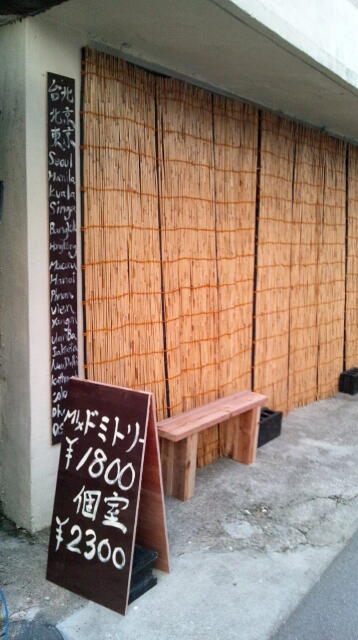 台北
北京
東京
Seoul
Manila
Kuala
Singa
Bangk
Hongkong
Macau
Hanoi
Phnom
Vien
Yango
Jakata
New Delhi
Colo
Mixドミトリー
¥1800
個室
¥2300